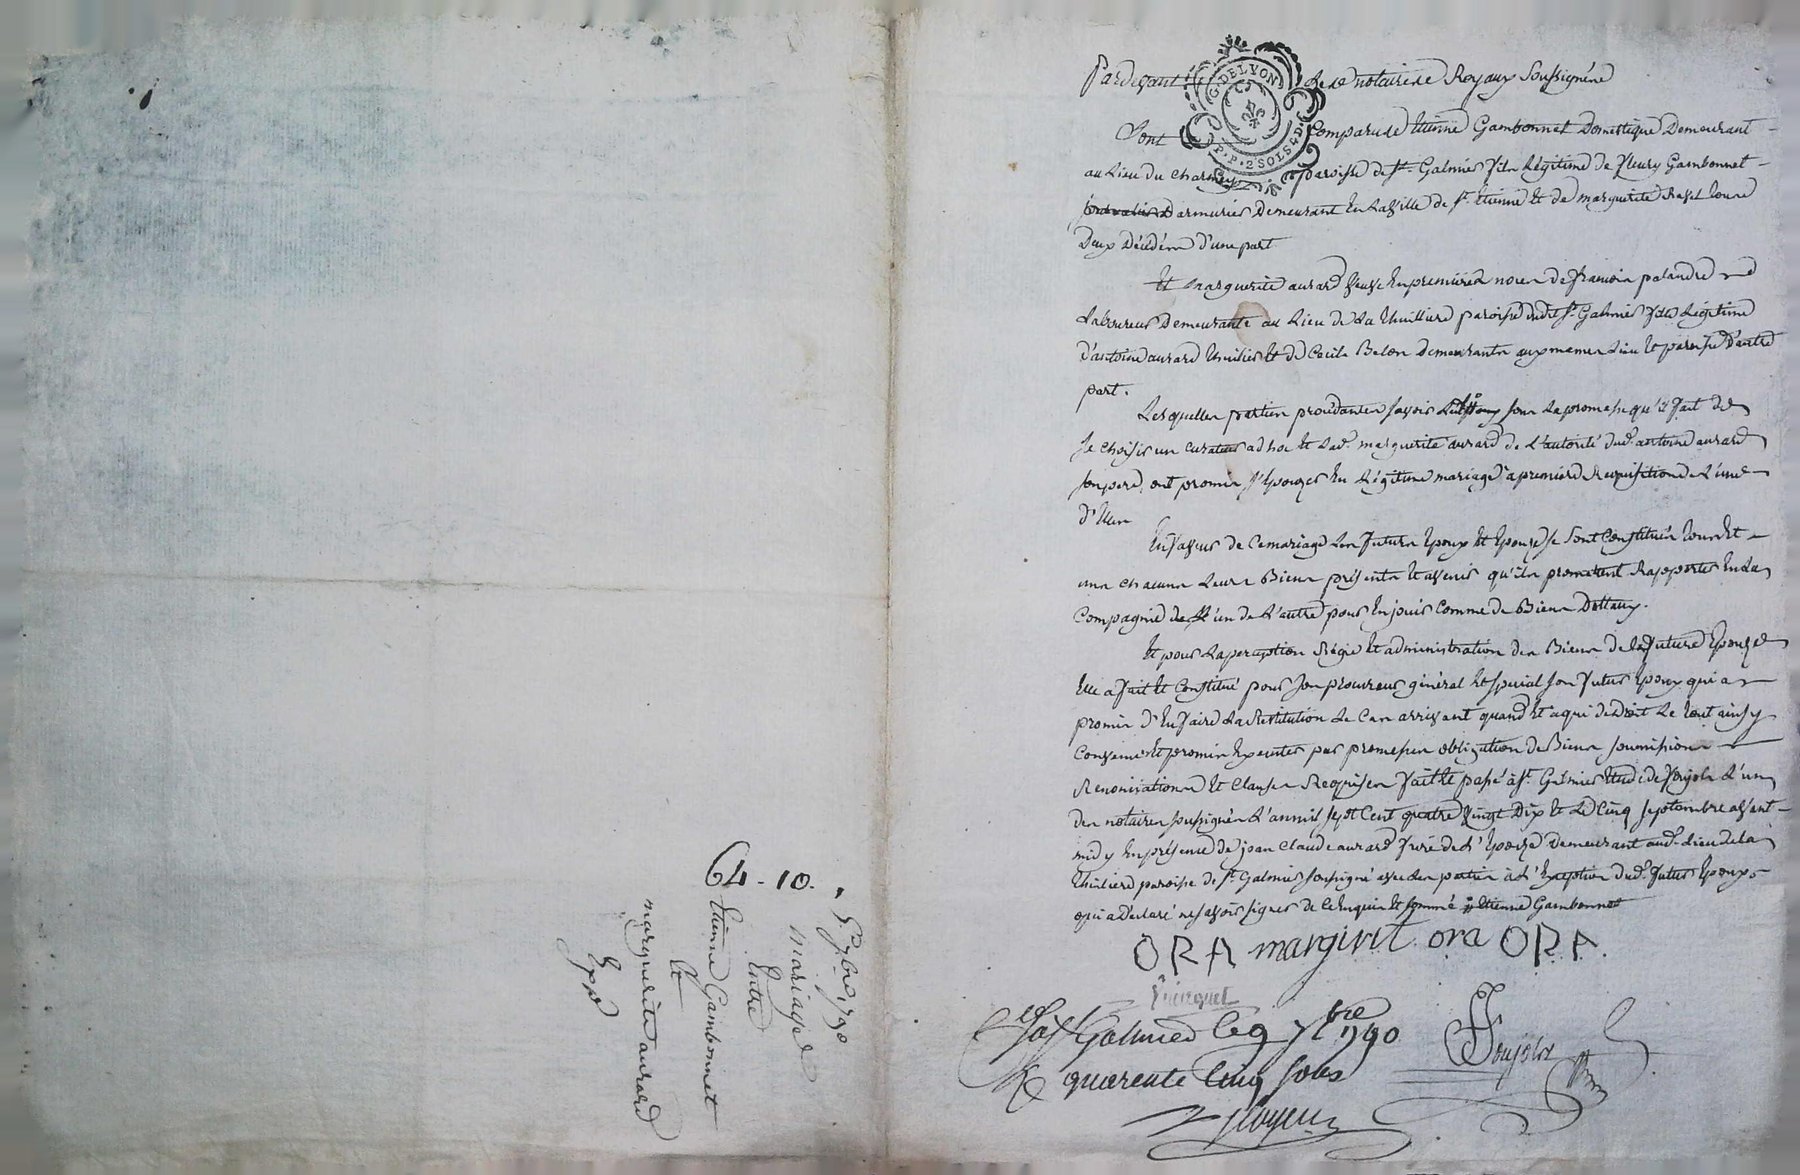 Pardevant les notaires Royaux Soussignés
G. DE LYON
P.P. 2 SOLS 4 D.
Sont Comparus Etienne Gambonnet Domestique Demeurant
au Lieu du Charmey paroisse de St. Galmier fils Légitime de fleury Gambonnet
armurier Demeurant En La Ville de St. Etienne Et de marguerite Ravel tous
Deux Décédés d'une part
Et marguerite aurard Veuve En premieres noces de francois palandre
Laboureur Demeurante au Lieu de La thuilliere paroisse dudit St. Galmier fille Légitime
d'antoine aurard thuilier Et de Cecile Belon demeurants aux memes Lieu Et paroisse D'autre
part.
Lesquelles parties procédantes savoir sous La promesse qu'il fait de
se choisir un curateur ad hoc Et Lad. marguerite aurard de L'autorité dud. antoine aurard
son pere, ont promis s'Epouzer En Légitime mariage a premiere Requisition de L'une
d'Elles
En faveur de Ce mariage Les futurs Epoux Et Epouze se sont Constitués tous Et
uns chacuns Leurs Biens présents Et avenir qu'ils promettent Rapporter En La
Compagnie de L'un de L'autre pour En jouir Comme de Biens Dottaux.
Et pour La perception Régie Et administration des Biens de La future Epouze
Elle a fait Et Constitué pour son procureur général Et spécial son futur Epoux qui a
promis d'En faire La Restitution Le Cas arrivant quand Et a qui de Droit Le tout ainsy
Convenu Et promis Executer par promesses obligation de Biens soumissions
Renonciations Et Clauses Requises fait Et passé à St. Galmier Etude de Poujols L'un
des notaires soussignés L'an mil sept Cent quatre Vingt Dix Et Le Cinq septembre avant
midy En présence de jean Claude aurard frere de L'Epouze Demeurant aud. Lieu de La
thuiliere paroisse de St. Galmier soussigné avec Les parties à L'Exception dud. futur Epoux
qui a Déclaré ne savoir signer de Ce Enquis Et sommé Etienne Gambonnet
ORA margirit ora ORA
à St Galmier le 9 7bre 1790
quarente Cinq sols
Poujols
64-10.
5 7bre 1790
mariage
Entre
Etienne Gambonnet
Et
marguerite aurard
Exp